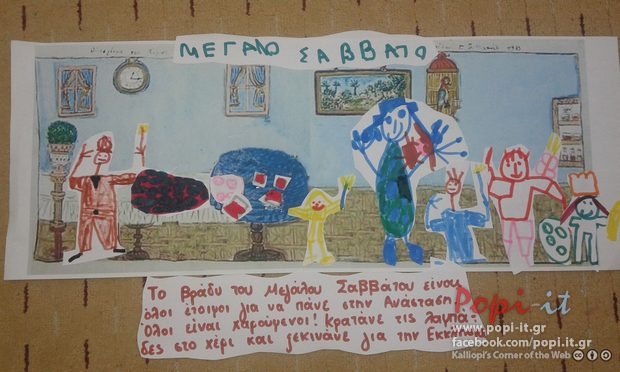 ΜΕΓΑΛΟ ΣΑΒΒΑΤΟ
Το βράδυ του Μεγάλου Σαββάτου είναι
όλοι έτοιμοι για να πάνε στην Ανάσταση.
Όλοι είναι χαρούμενοι! Κρατάνε τις λαμπά-
δες στο χέρι και ξεκινάνε για την Εκκλησία
Popi-it
www.popi-it.gr
facebook.com/popi.it.gr
Kalliopi's Corner of the Web